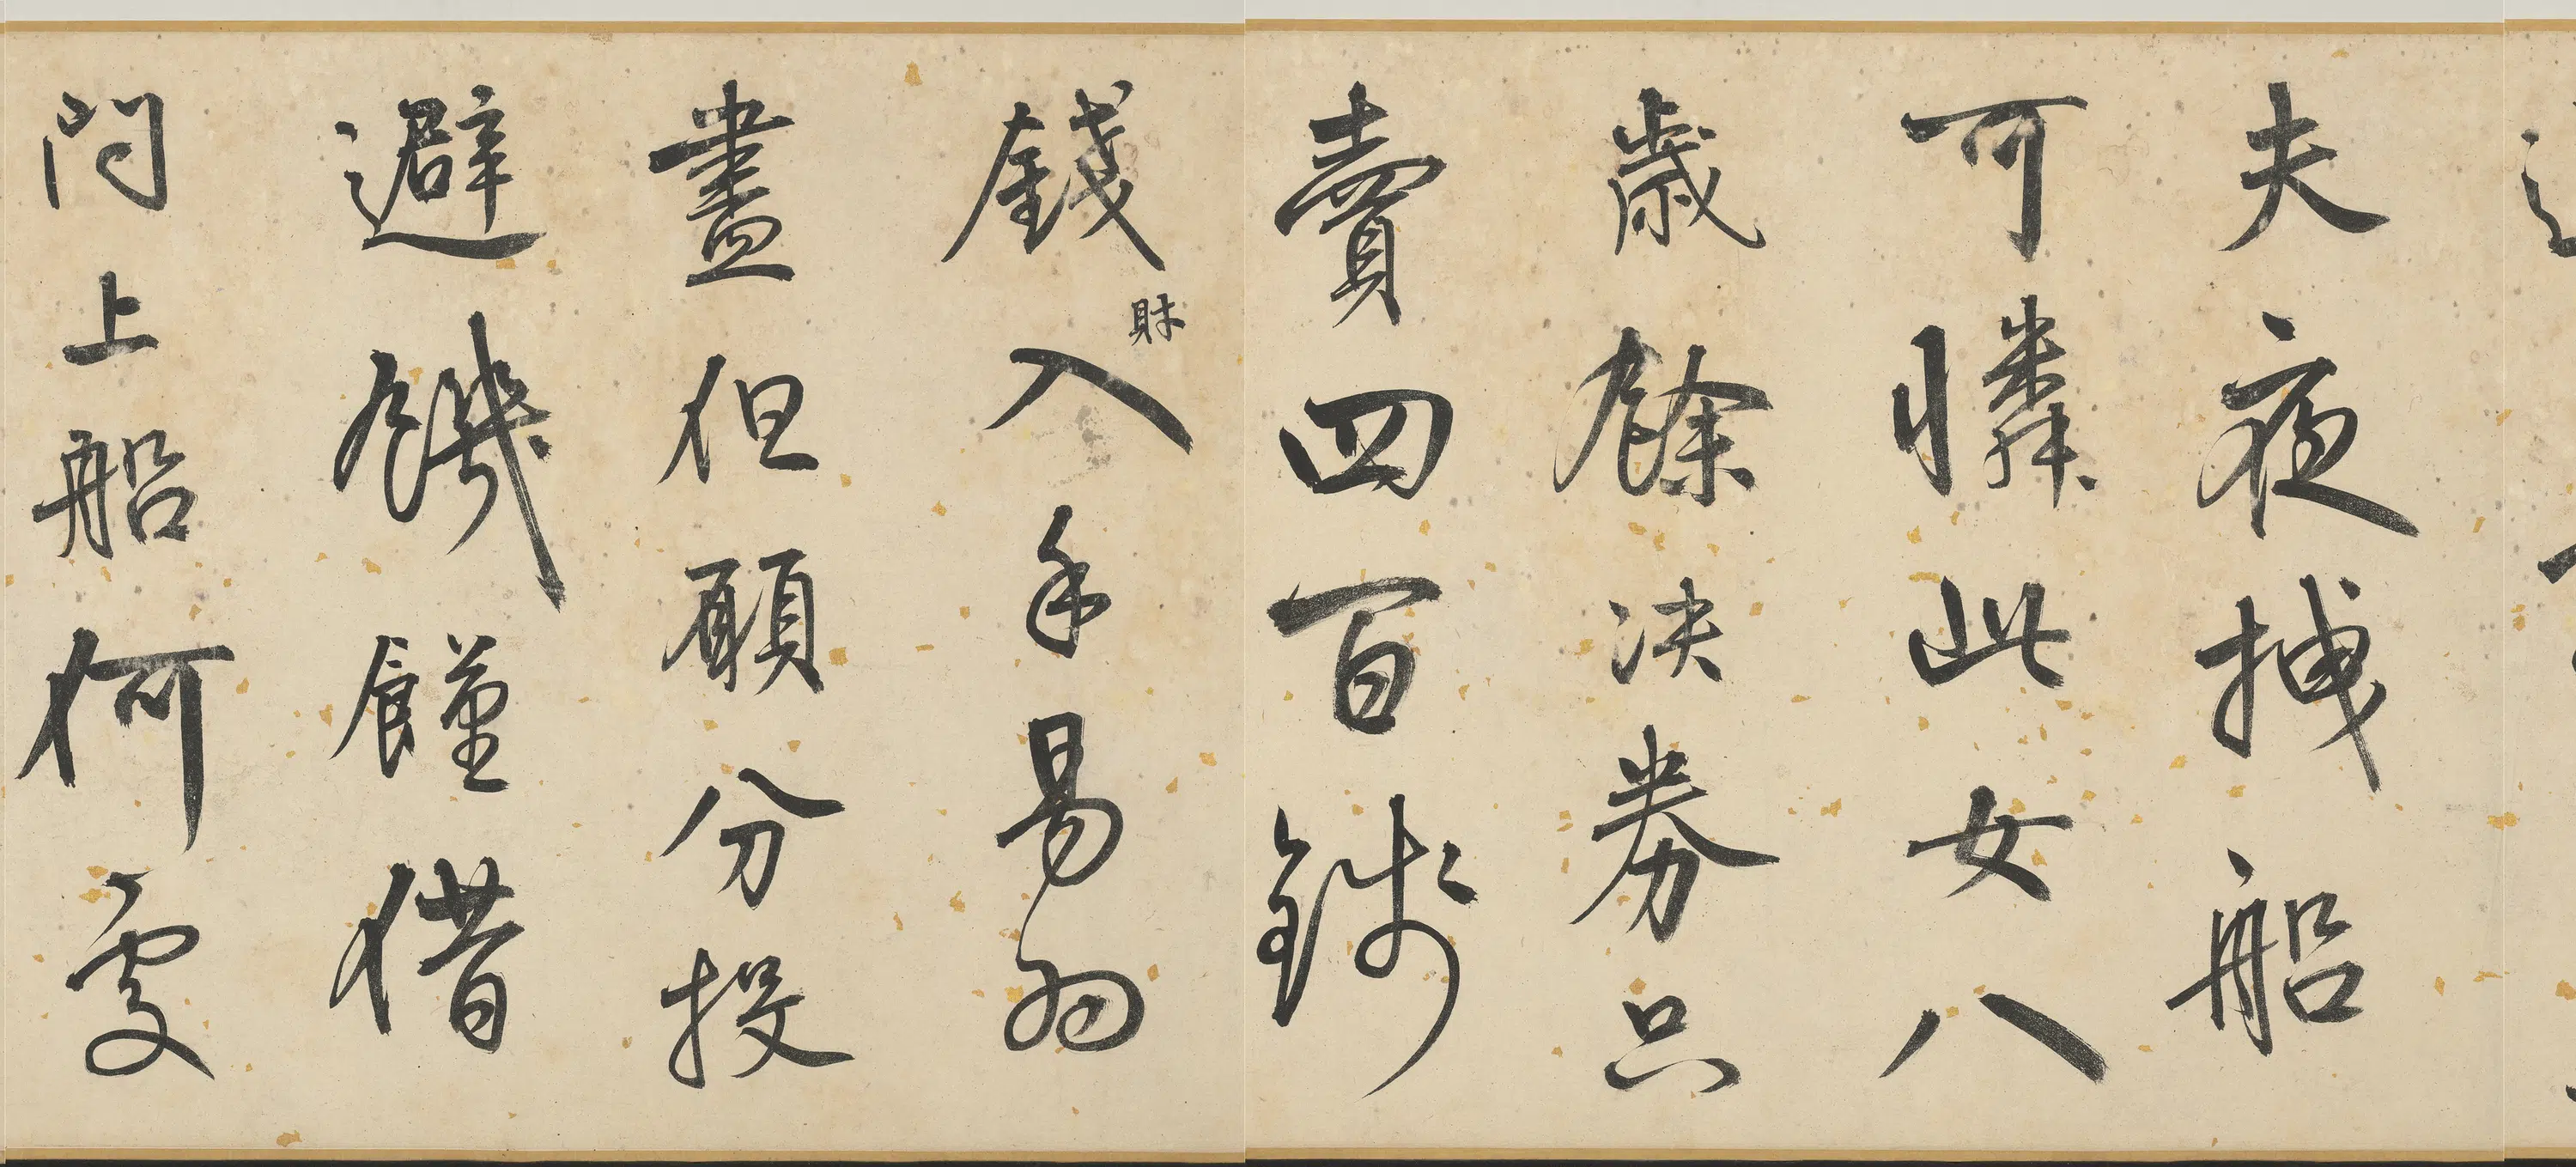 夫夜拽船
可憐此女八
歲餘決券只
賣四百錢
錢入手易為
財
盡但願分投
避饑饉借
問上船何處